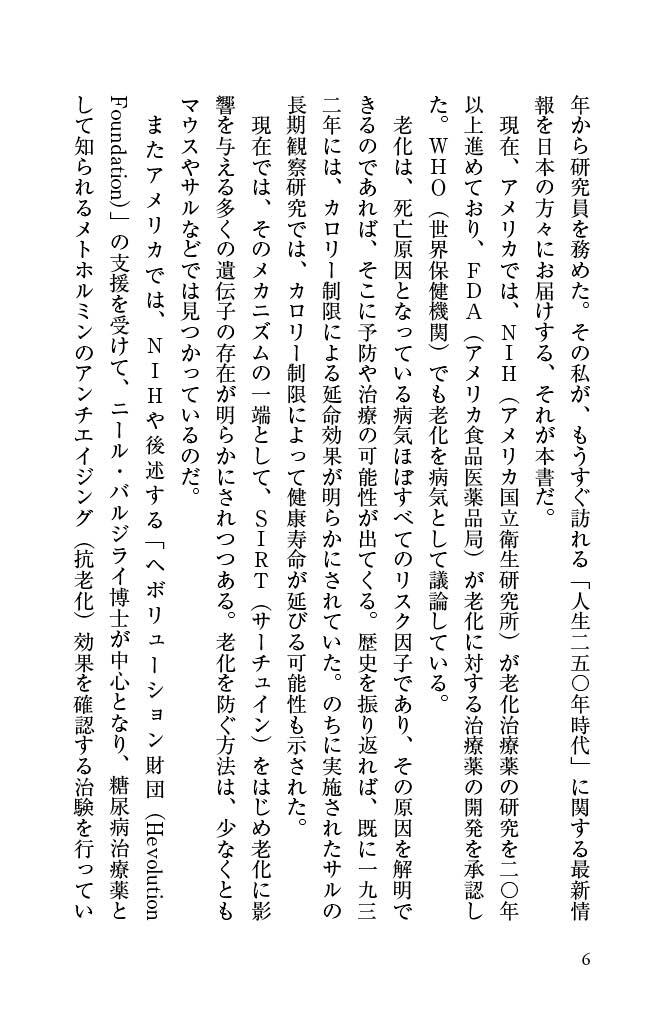 年から研究員を務めた。その私が、もうすぐ訪れる「人生二五〇年時代」に関する最新情
報を日本の方々にお届けする、それが本書だ。
現在、アメリカでは、ＮＩＨ（アメリカ国立衛生研究所）が老化治療薬の研究を二〇年
以上進めており、ＦＤＡ（アメリカ食品医薬品局）が老化に対する治療薬の開発を承認し
た。ＷＨＯ（世界保健機関）でも老化を病気として議論している。
老化は、死亡原因となっている病気ほぼすべてのリスク因子であり、その原因を解明で
きるのであれば、そこに予防や治療の可能性が出てくる。歴史を振り返れば、既に一九三
二年には、カロリー制限による延命効果が明らかにされていた。のちに実施されたサルの
長期観察研究では、カロリー制限によって健康寿命が延びる可能性も示された。
現在では、そのメカニズムの一端として、ＳＩＲＴ（サーチュイン）をはじめ老化に影
響を与える多くの遺伝子の存在が明らかにされつつある。老化を防ぐ方法は、少なくとも
マウスやサルなどでは見つかっているのだ。
またアメリカでは、ＮＩＨや後述する「ヘボリューション財団（Hevolution
Foundation）」の支援を受けて、ニール・バルジライ博士が中心となり、糖尿病治療薬と
して知られるメトホルミンのアンチエイジング（抗老化）効果を確認する治験を行ってい
6